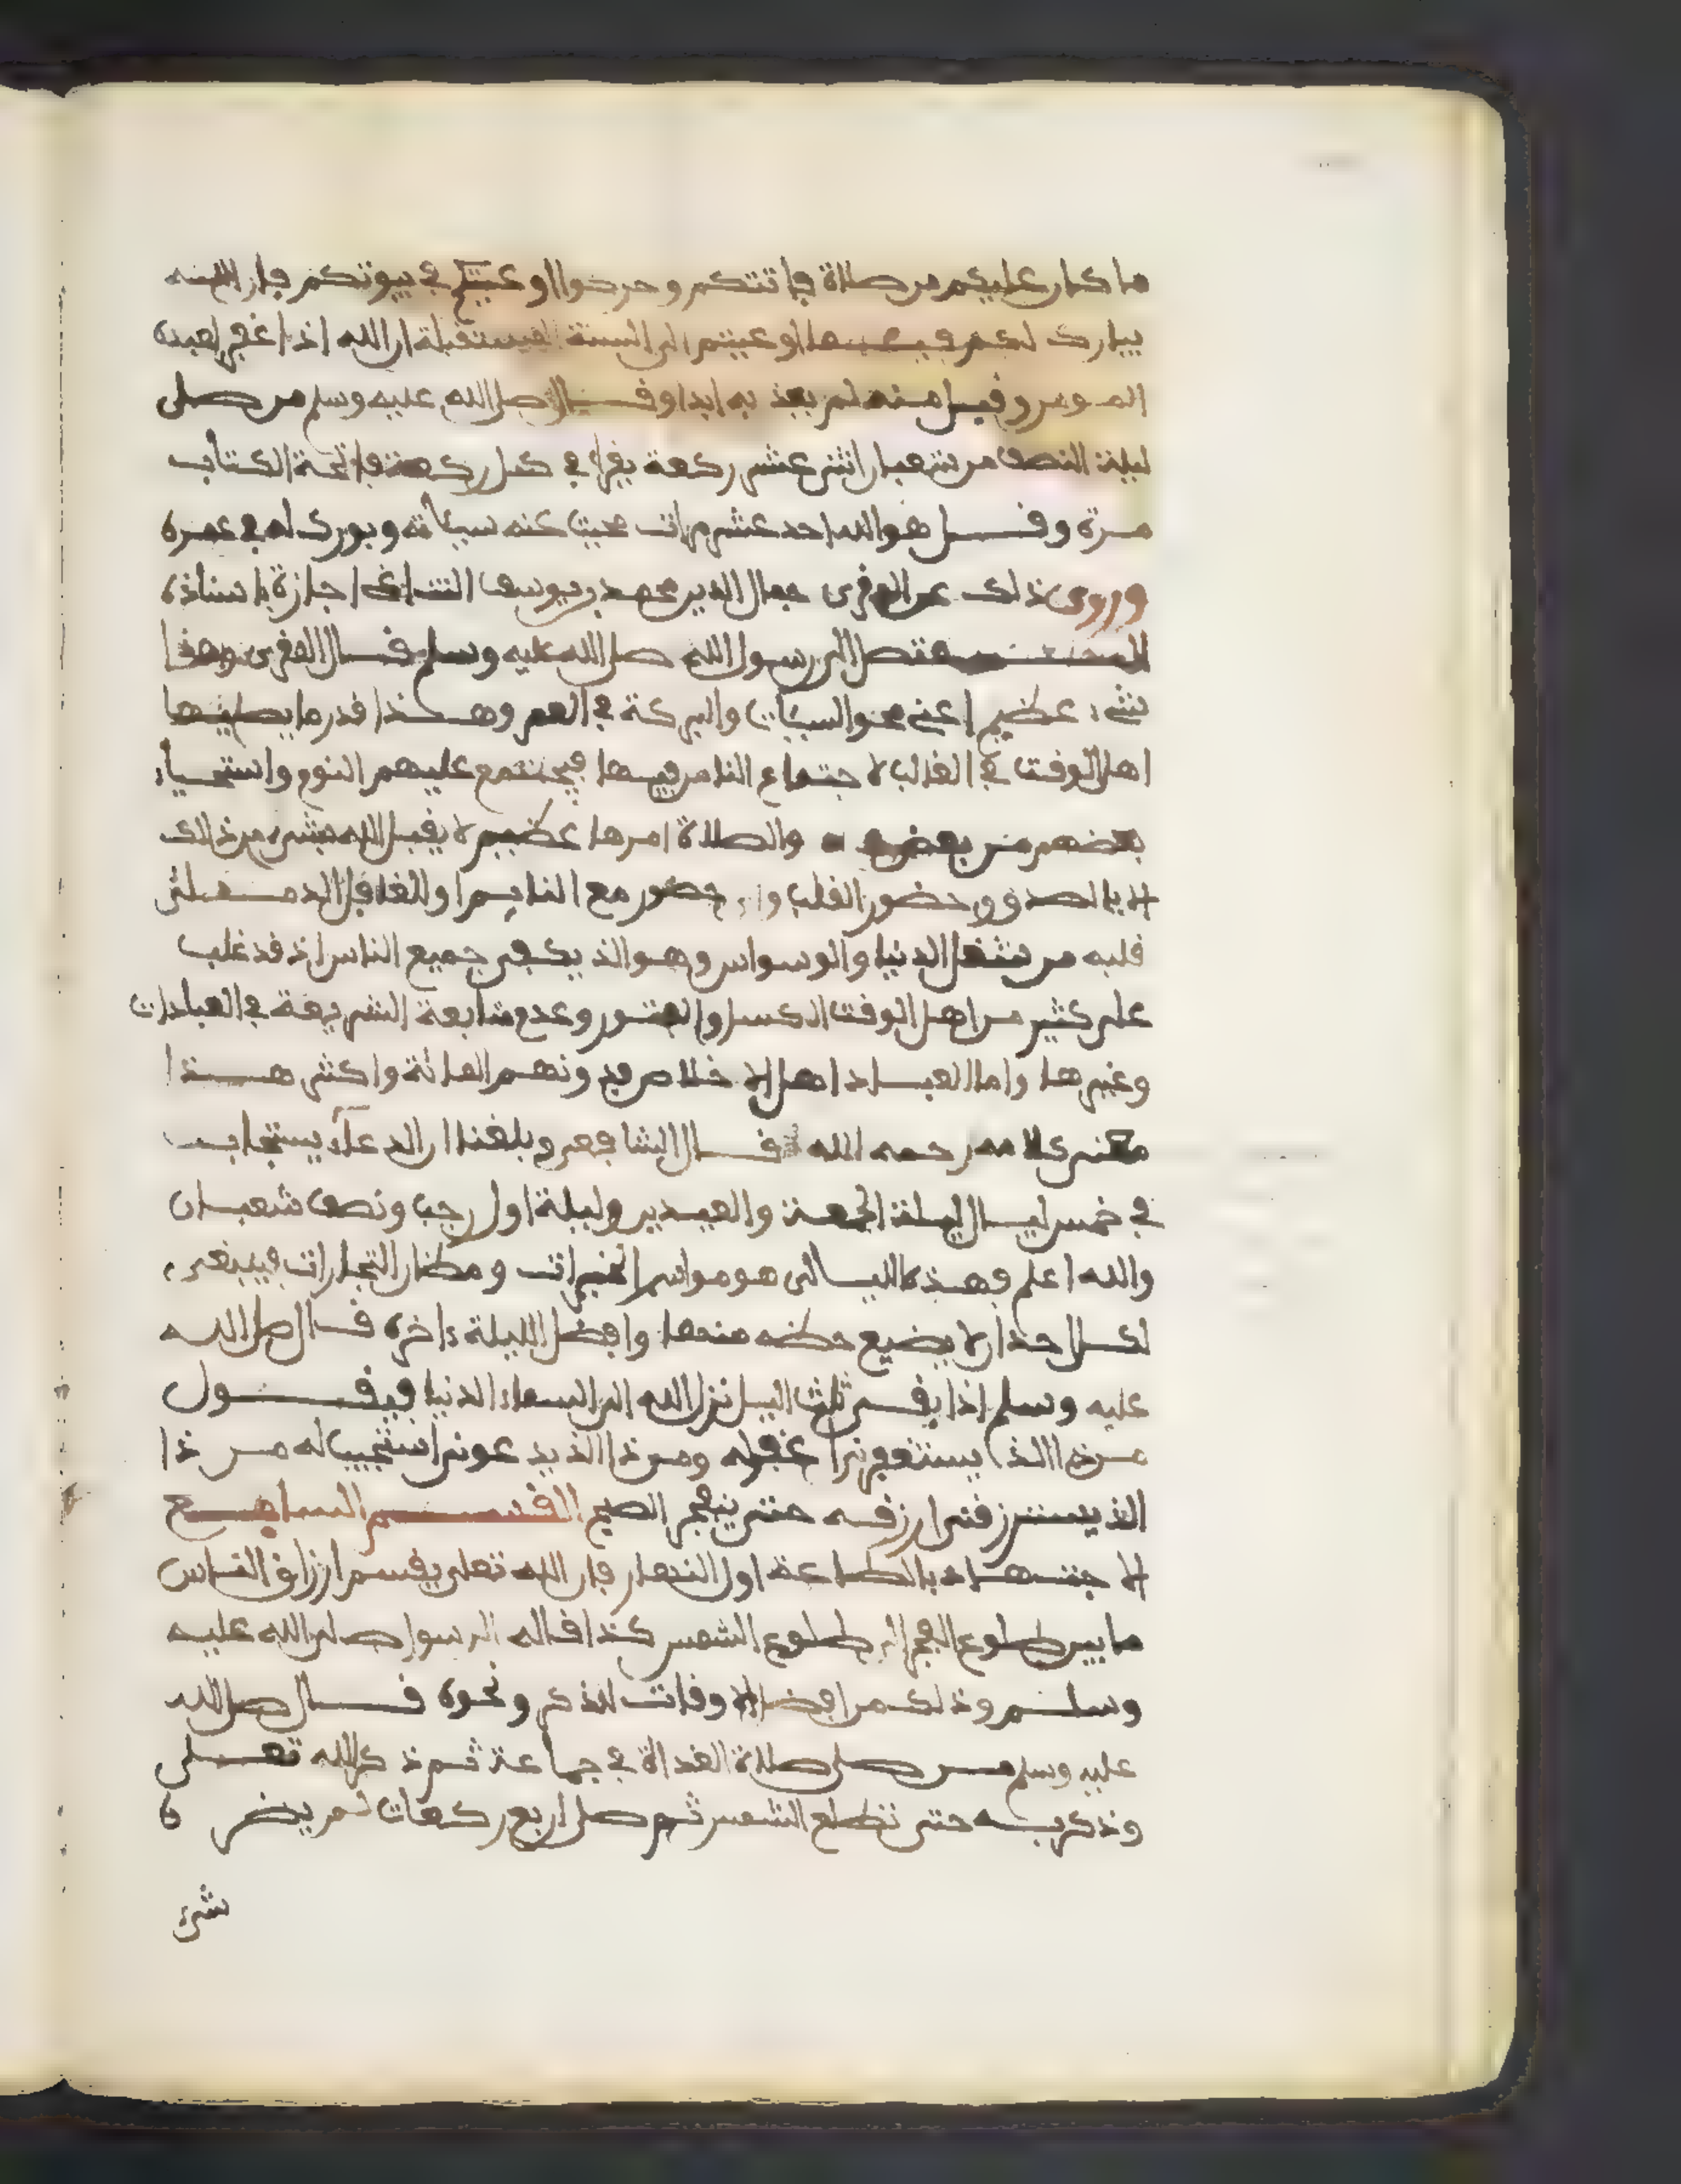 ما كان عليكم من صلاة فاتتكم وحرضوا او عبتم في بيوتكم فان الله
يبارك لكم فيها او عبتم الى السنة المستقبلة ان الله اذا غفر لعبده
المومن وقبل منه لم يعذ به ابدا وقال صلى الله عليه وسلم من صلى
ليلة النصف من شعبان اثنى عشر ركعة يقرا في كل ركعة فاتحة الكتاب
مرة وقل هو الله احد عشر مرات محيت عنه سيئاته وبورك له في عمره
وروى ذلك عن المقرى جمال الدين محمد بن يوسف اجازة باسناذه
متصل الى رسول الله صلى الله عليه وسلم قال المقرى وهذا
شيء عظيم اعنى محو السيئات والبركة في العمر وهكذا قدر ما يصليها
اهل الوقت في الغالب لاجتماع الناس فيها فيجتمع عليهم النوم واستحياء
بعضهم من بعض والصلاة امرها عظيم لا يقبل الله شيء من ذلك
الا بالصدق وحضور القلب ولا حضور مع النايم او الغافل الذ
قلبه من شغل الدنيا والوسواس وهو الذ يكفى جميع الناس اذ قد غلب
على كثير من اهل الوقت الكسل والفتور وعدم متابعة الشريعة في العبادات
وغيرها واما العباد اهل الاخلاص فدونهم العانة واكثر هذا
من كلامه رحمه الله قال الشافعى وبلغنا ان الدعاء يستجاب
في خمس ليال ليلة الجمعة والعيدين وليلة اول رجب ونصف شعبان
والله اعلم وهذه الليالى هو مواسم الخيرات ومظان التجارات فينبغى
لكل احد ان لا يضيع حظه منها وافضل الليلة ءاخره قال صلى الله
عليه وسلم اذا بقى ثلث اليل نزل الله الى السماء الدنيا فيقول
من ذا الذى يستغفرنى اغفرله ومن ذا الذ يدعونى استجيب له من ذا
الذ يسترزقنى ارزقه حتى ينفجر الصبح القسم السابع
الاجتهاد بالطاعة اول النهار فان الله تعلى يقسم ارزاق الناس
ما بين طلوع الفجر الى طلوع الشمس كذا قاله الرسول صلى الله عليه
وسلم وذلك من افضل الاوقات للذكر ونحوه قال صلى الله
عليه وسلم من صلى صلاة الغداة في جماعة ثم ذكر الله تعلى
وذكر به حتى تطلع الشمس ثم صلى اربع ركعات لم يضره
شىء